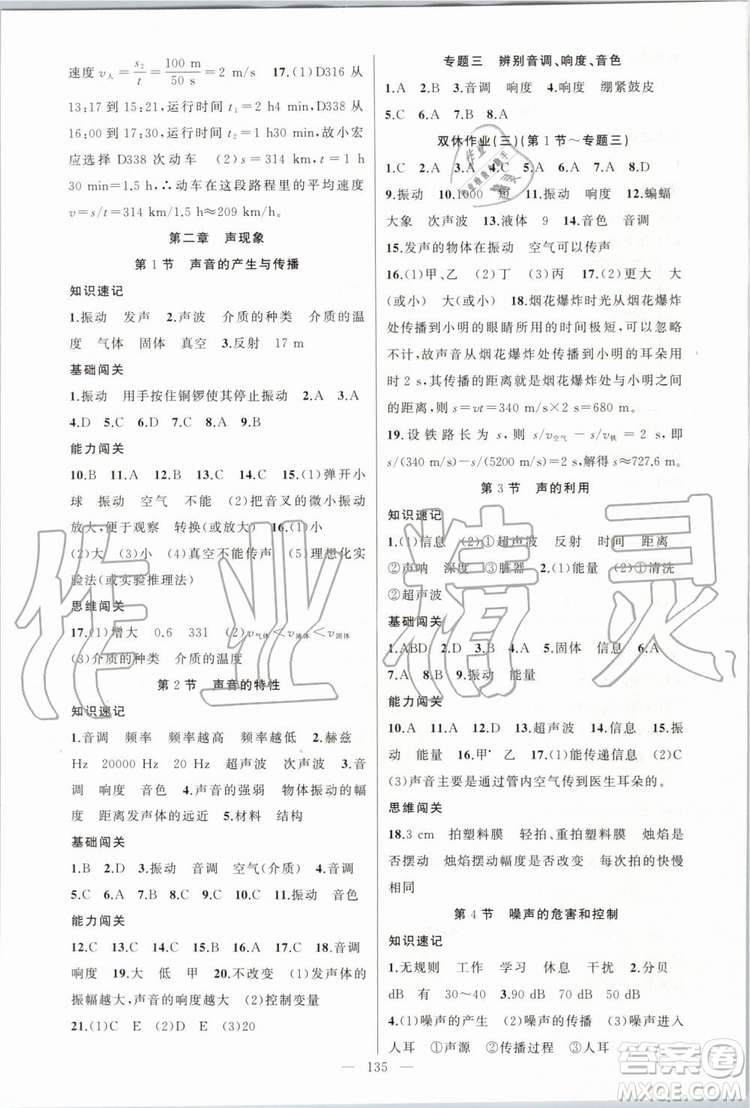 速度v人=s2/t=100 m/50 s=2 m/s　17.(1)D316 从
13:17 到 15:21,运行时间 t1=2 h4 min;D338 从
16:00 到 17:30,运行时间 t2=1 h30 min,故小宏
应选择 D338 次动车　(2)s=314 km,t=1 h
30 min=1.5 h,∴动车在这段路程里的平均速度
v=s/t=314 km/1.5 h≈209 km/h。
第二章　声现象
第1节　声音的产生与传播
知识速记
1.振动　发声　2.声波　介质的种类　介质的温
度　气体　固体　真空　3.反射　17 m
基础闯关
1.振动　用手按住铜锣使其停止振动　2.C　3.A
4.D　5.C　6.C　7.C　8.A　9.B
能力闯关
10.B　11.A　12.C　13.D　14.B　15.(1)弹开小
球　振动　空气　不能　(2)把音叉的微小振动
放大,便于观察　转换(或放大)　16.(1)小
(2)大　(3)小　(4)真空不能传声　(5)理想化实
验法(或实验推理法)
思维闯关
17.(1)增大　0.6　331　(2)v气体<v液体<v固体
(3)介质的种类　介质的温度
第2节　声音的特性
知识速记
1.音调　频率　频率越高　频率越低　2.赫兹
Hz　20000 Hz　20 Hz　超声波　次声波　3.音
调　响度　音色　4.声音的强弱　物体振动的幅
度　距离发声体的远近　5.材料　结构
基础闯关
1.B　2.D　3.振动　音调　空气(介质)　4.音调
5.C　6.C　7.A　8.B　9.C　10.C　11.振动　音色
能力闯关
12.C　13.C　14.D　15.C　16.D　17.B　18.音调
响度　19.大　低　甲　20.不改变　(1)发声体的
振幅越大,声音的响度越大　(2)控制变量
21.(1)C　D　E　(2)C　D　E　(3)20
专题三　辨别音调、响度、音色
1.A　2.B　3.音调　响度　4.响度　绷紧鼓皮
5.C　6.A　7.B　8.A
双休作业(三)(第1节~专题三)
1.C　2.C　3.B　4.A　5.C　6.A　7.B　8.D
9.振动　10.1000　短　11.振动　响度　12.蝙蝠
大象　次声波　13.液体　9　14.音色　音调
15.发声的物体在振动　空气可以传声
16.(1)甲、乙　(2)丙　(3)丁　17.更大　大
(或小)　大(或小)　18.烟花爆炸时光从烟花爆炸
处传播到小明的眼睛所用的时间极短,可以忽略
不计,故声音从烟花爆炸处传播到小明的耳朵用
时2 s,其传播的距离等于烟花爆炸处与小明之间
的距离,则 s=vt=340 m/s×2 s=680 m。
19.设铁路长为s,则 s/v空气-s/v铁=2 s,即
s/(340 m/s)-s/(5200 m/s)=2 s,解得 s≈727.6 m。
第3节　声的利用
知识速记
1.(1)信息　(2)①超声波　反射　时间　距离
②声呐　深度　③脏器　2.(1)能量　(2)①清洗
②超声波
基础闯关
1.ABD　2.D　3.D　4.C　5.固体　信息　6.D
7.A　8.D　9.振动　能量
能力闯关
10.A　11.A　12.D　13.超声波　14.信息　15.振
动　能量　16.甲　乙　17.(1)能传递信息　(2)C
(3)声音主要是通过管内空气传到医生耳朵的。
思维闯关
18.3 cm　拍塑料膜　轻拍、重拍塑料膜　烛焰是
否摆动　烛焰摆动幅度是否改变　每次拍的快慢
相同
第4节　噪声的危害和控制
知识速记
1.无规则　工作　学习　休息　干扰　2.分贝
dB　有　30~40　3.90　50　70
4.(1)噪声的产生　(2)噪声的传播　(3)噪声进入
人耳　①声源　②传播过程　③人耳
135
作业精灵
答案圈
MXQE.COM